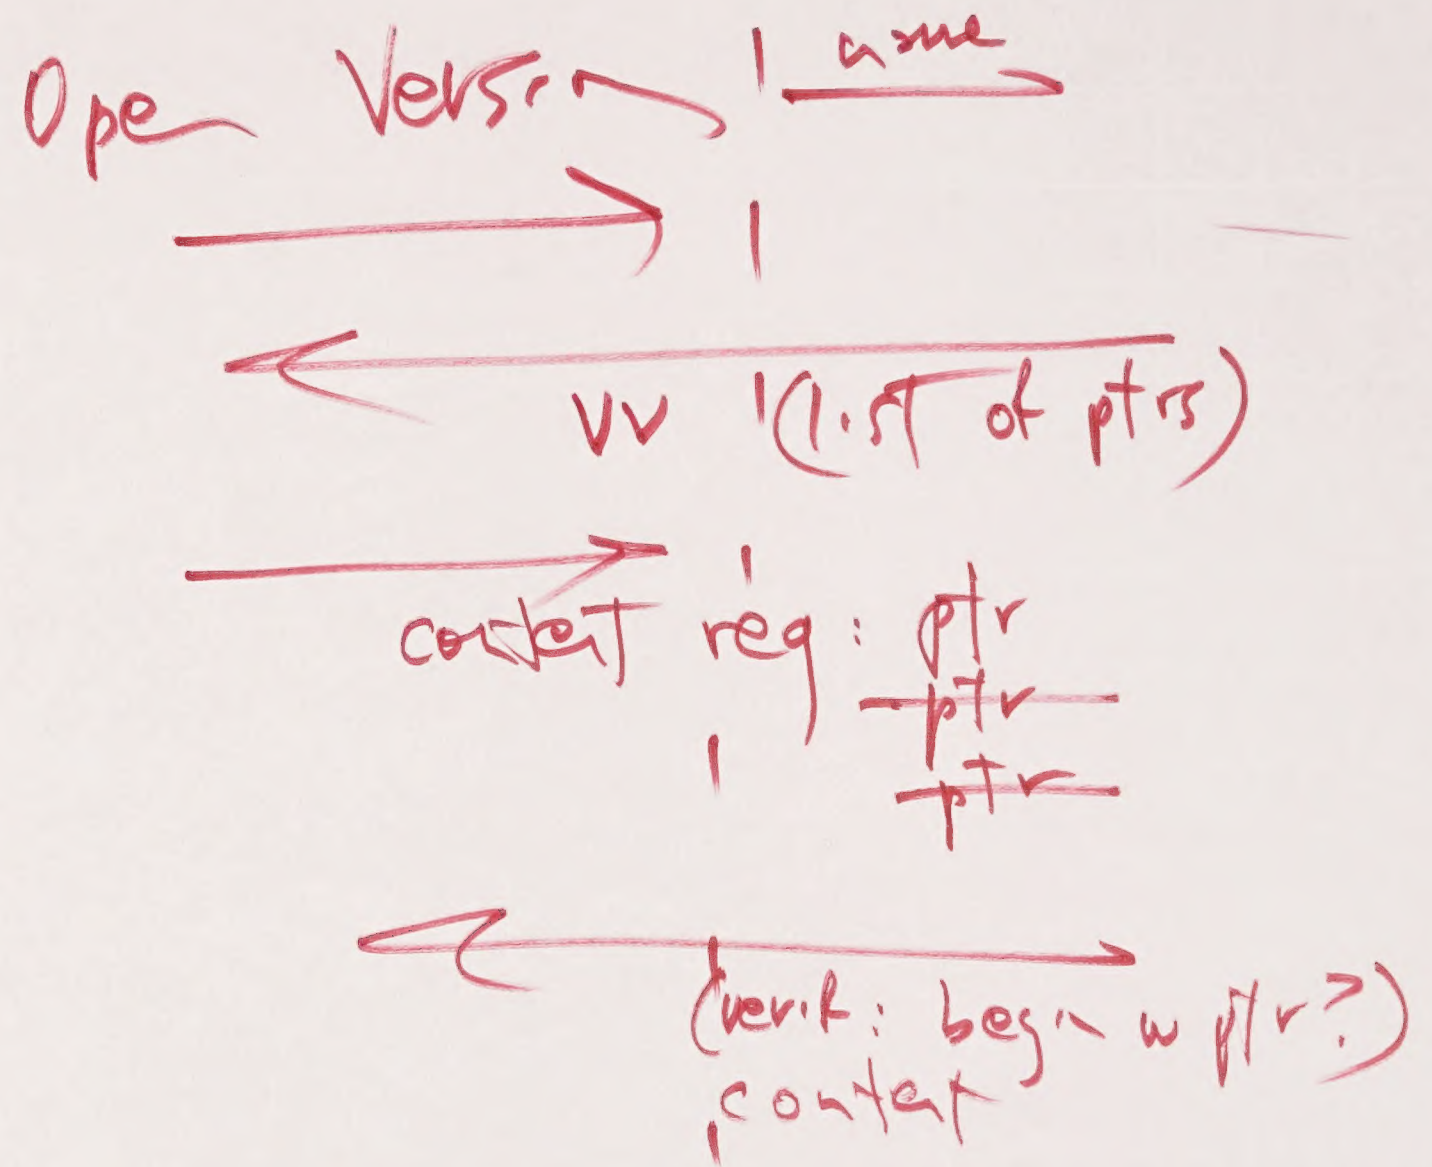 Open Version name
VV (list of ptrs)
content req: ptr
ptr
ptr
(verif: begin w ptr?)
content